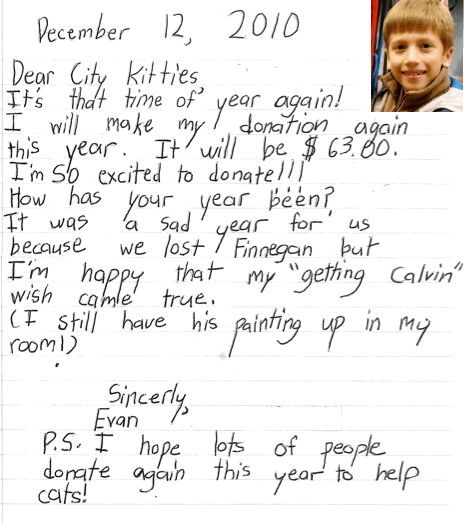 December 12, 2010
Dear City Kitties
It's that time of year again!
I will make my donation again
this year. It will be $63.00.
I'm SO excited to donate!!!
How has your year been?
It was a sad year for us
because we lost Finnegan but
I'm happy that my "getting Calvin"
wish came true.
(I still have his painting up in my
room!)
Sincerly,
Evan
P.S. I hope lots of people
donate again this year to help
cats!